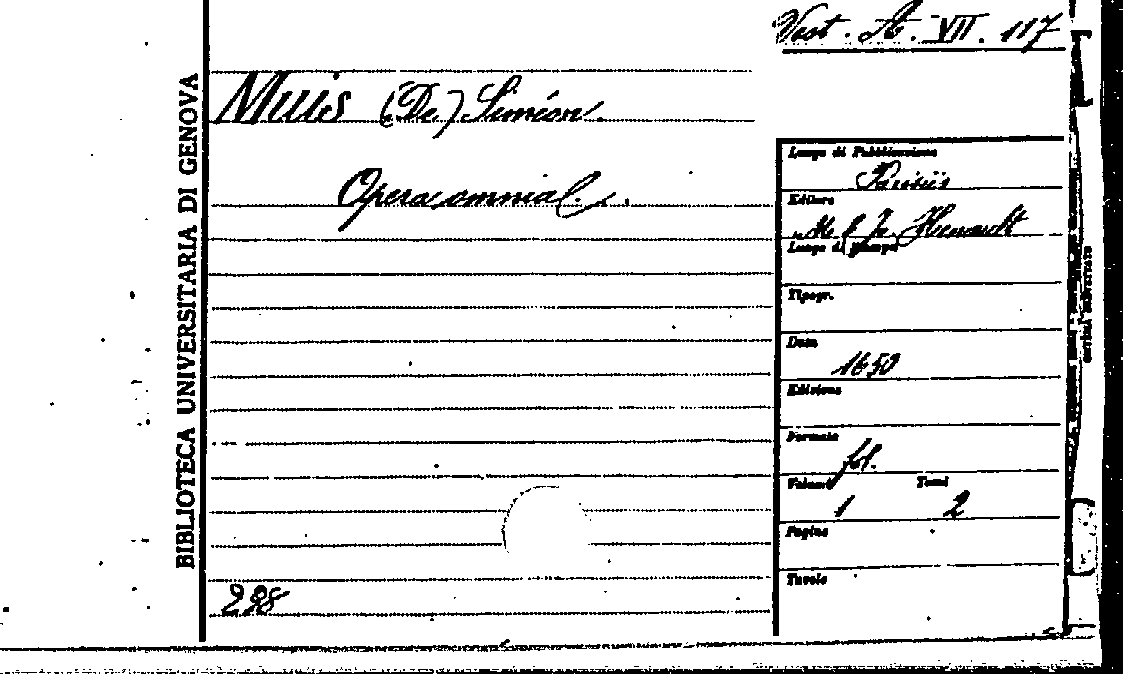 Vest. A. VII. 117
BIBLIOTECA UNIVERSITARIA DI GENOVA
Muis (De) Siméon.
Opera omnia
Luogo di Pubblicazione
Parisiis
Editore
M. & J. Henault
Luogo di Stampa
Tipogr.
Data
1650
Edizione
Formato
fol.
Volumi Tomi
1 2
Pagine
Tavole
298